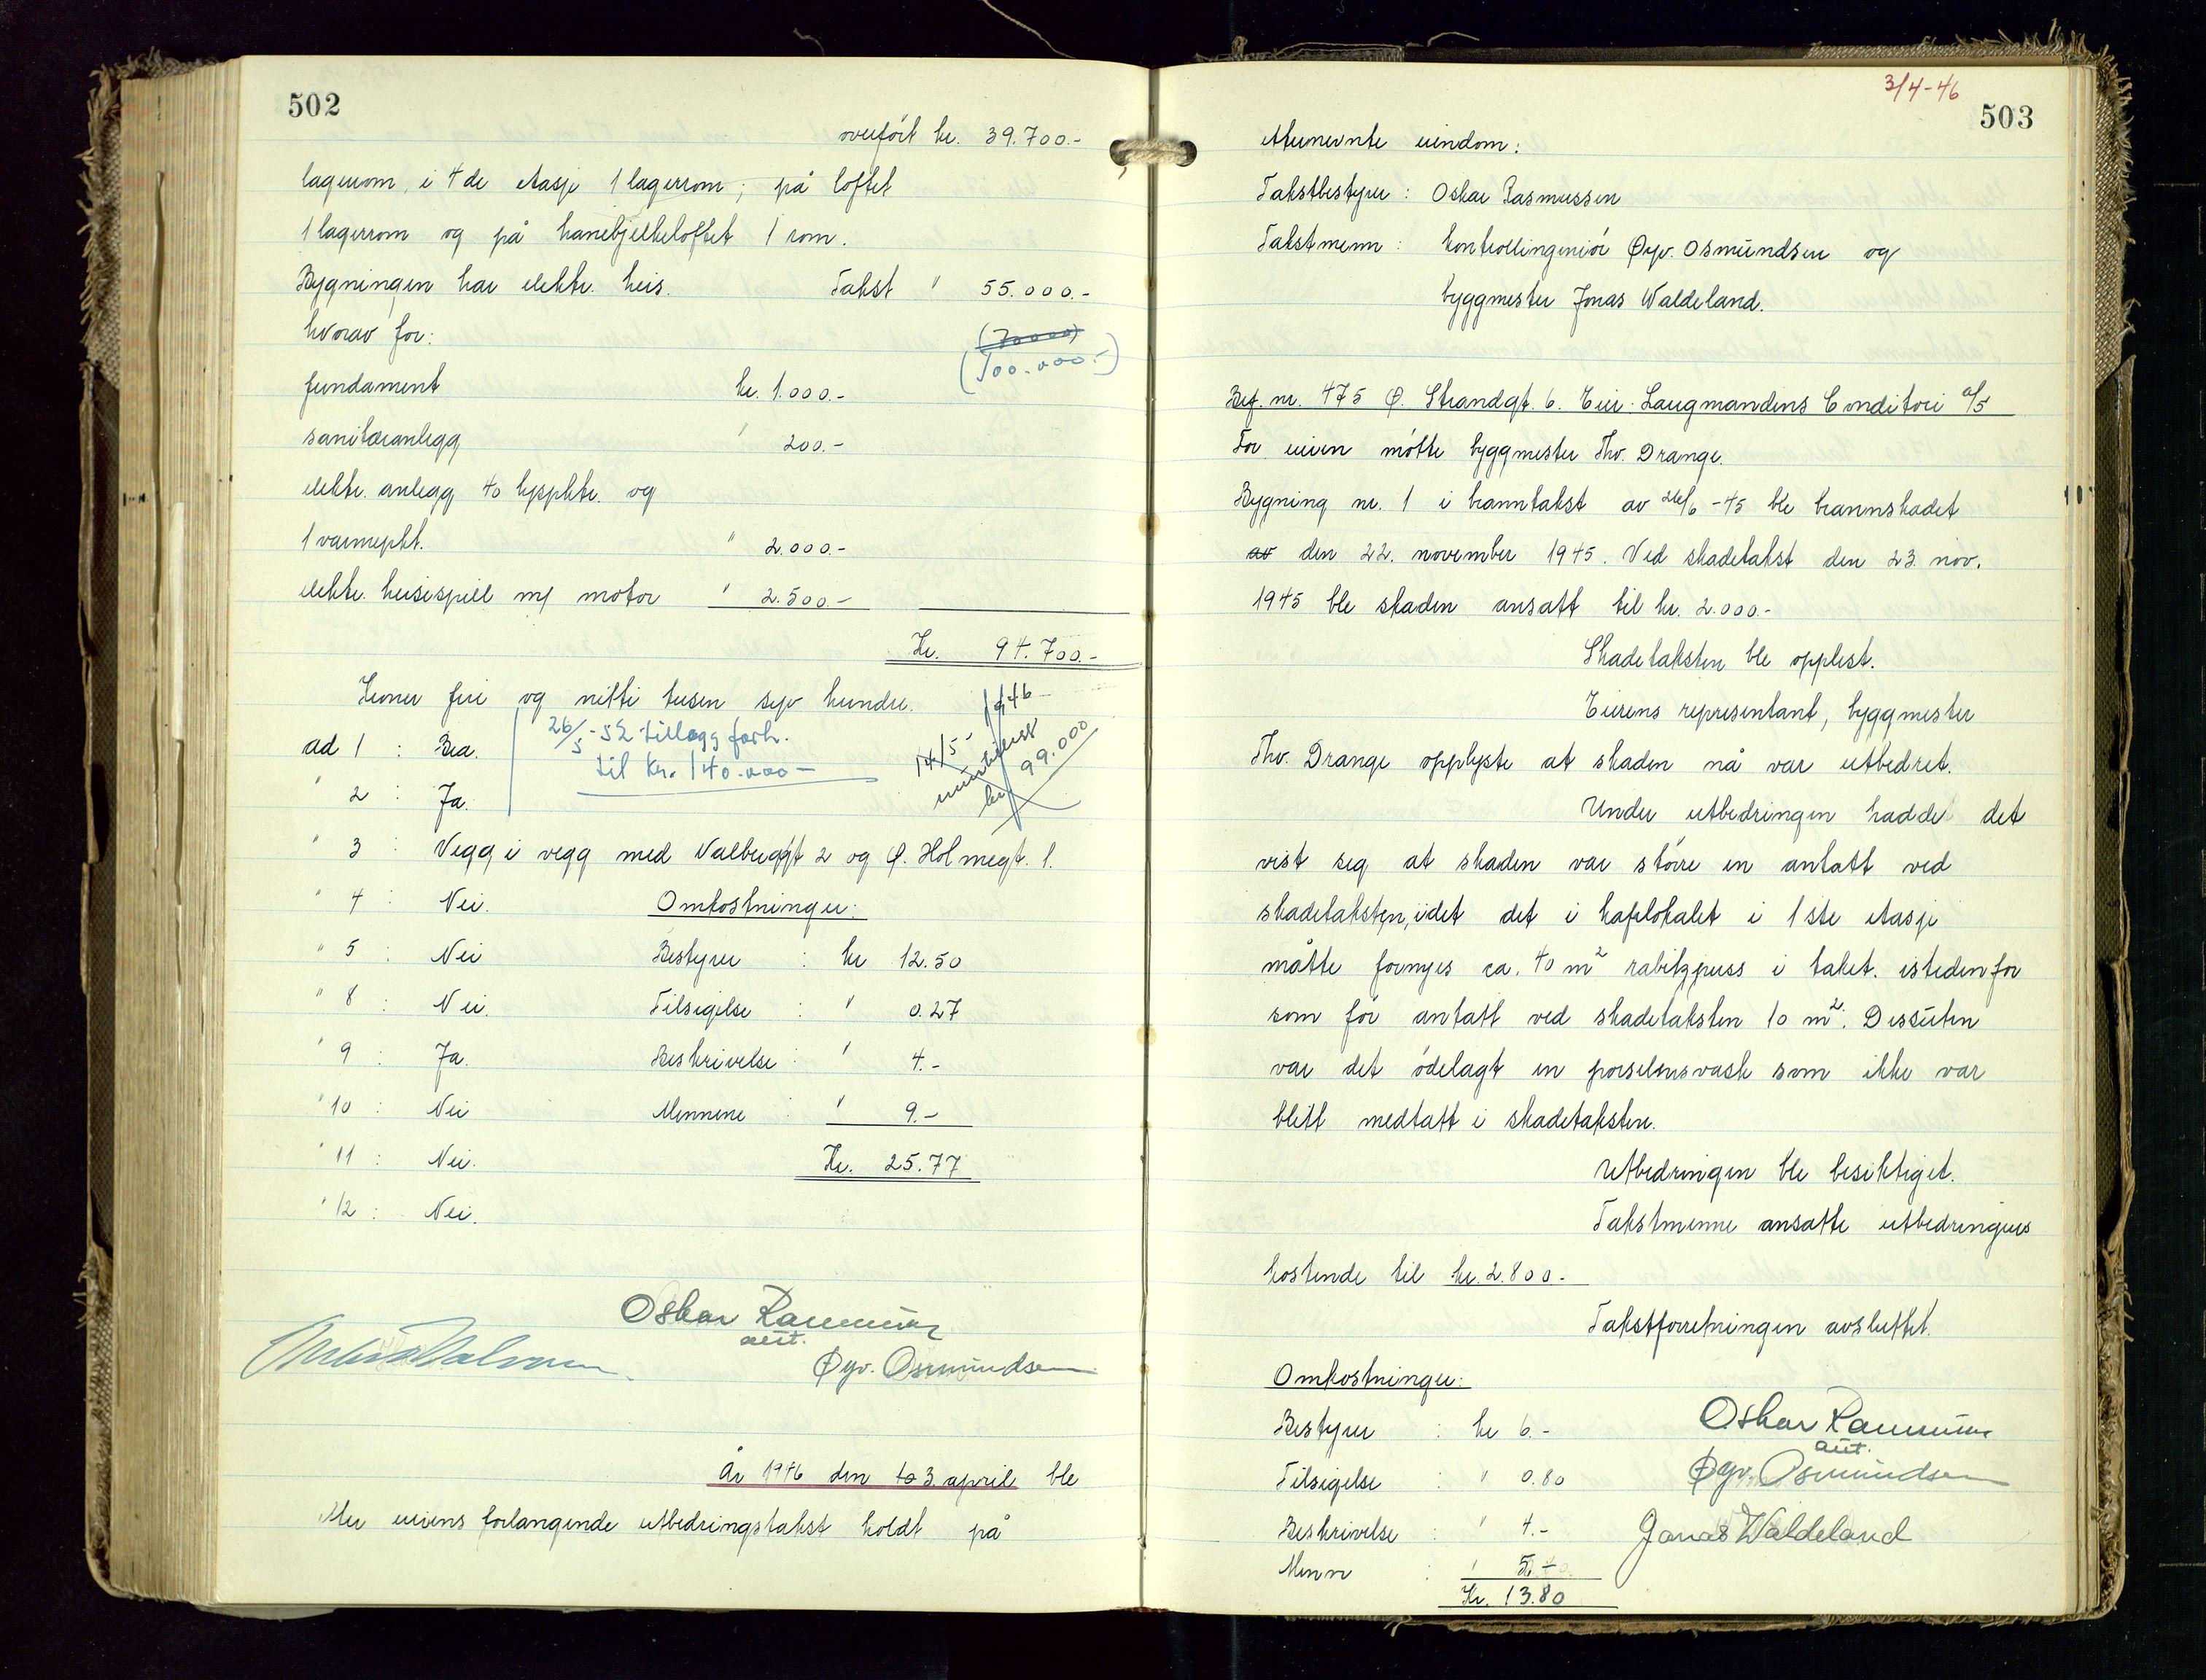 502
overført kr. 39.700.-
lagerrom, i 4de etasje 1 lagerrom, på loftet
1 lagerrom og på hanebjelkeloftet 1 rom.
Bygningen har elektr. heis. Takst " 55.000.-
hvorav for: (70000)
(100.000.-)
fundament kr. 1.000.-
sanitæranlegg " 200.-
elektr. anlegg 40 lyspktr. og
1 varmepkt. " 2.000.-
elektr. heisespill m/ motor " 2.500.-
Kr. 94.700.-
Kroner fire og nitti tusen syv hundre.
26/5-52 tillegg forh.
til kr. 140.000-
14/5-1946
kr 99.000
ad 1 : Bra.
" 2 : Ja.
" 3 : Vegg i vegg med Valbuggt 2 og Ø. Holmegt. 1.
" 4 : Nei. Omkostninger:
" 5 : Nei Bestyrer : kr 12.50
" 8 : Nei. Tilsigelse : " 0.27
" 9 : Ja. Beskrivelse : " 4.-
" 10 : Nei Mennene : " 9.-
" 11 : Nei. Kr. 25.77
" 12 : Nei.
Oskar Rasmussen
aut.
Øyv. Osmundsen
År 1946 den to 3. april ble
etter eierens forlangende utbedringstakst holdt på
3/4-46
503
etternevnte eiendom:
Takstbestyrer : Oskar Rasmussen
Takstmenn : kontrollingeniør Øyv. Osmundsen og
byggmester Jonas Waldeland.
Bef. nr. 475 Ø. Strandgt. 6. Eier: Laugmandens Conditori a/s
For eieren møtte byggmester Thv. Drange.
Bygning nr. 1 i branntakst av 26/6-45 ble brannskadet
av den 22. november 1945. Ved skadetakst den 23. nov.
1945 ble skaden ansatt til kr. 2.000.-
Skadetaksten ble opplest.
Eierens representant, byggmester
Thv. Drange opplyste at skaden nå var utbedret.
Under utbedringen hadde det
vist seg at skaden var større en antatt ved
skadetaksten, idet det i kafelokalet i 1ste etasje
måtte fornyes ca. 40 m² rabitzpuss i taket. istedenfor
som før antatt ved skadetaksten 10 m². Dessuten
var det ødelagt en porselensvask som ikke var
blitt medtatt i skadetaksten.
Utbedringen ble besiktiget.
Takstmennene ansatte utbedringens
kostende til kr. 2.800.-
Takstforretningen avsluttet.
Omkostninger:
Bestyrer : kr 6.- Oskar Rasmussen
aut.
Tilsigelse : " 0.80 Øyv. Osmundsen
Beskrivelse : " 4.- Jonas Waldeland
Menn : "
Kr. 13.80